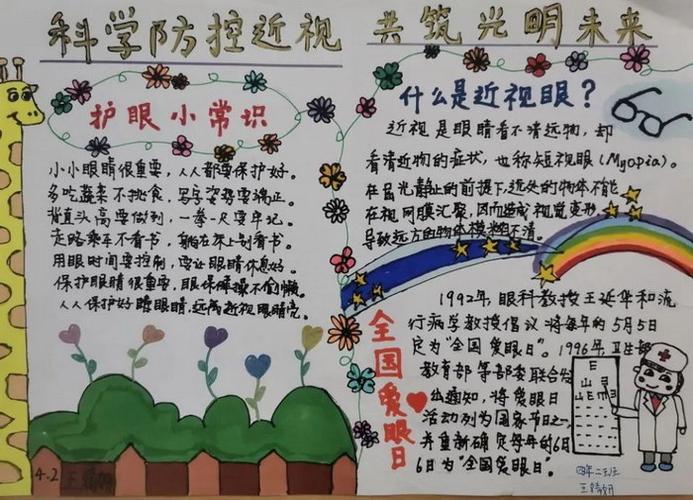 科学防控近视 共筑光明未来
护眼小常识
小小眼睛很重要，人人都要保护好。
多吃蔬菜不挑食，写字姿势要端正。
背直头高要做到，一拳一尺要牢记。
走路乘车不看书，躺在床上别看书。
用眼时间要控制，要让眼睛休息好。
保护眼睛很重要，眼保健操不偷懒。
人人保护好眼睛，远离近视眼睛亮。
什么是近视眼？
近视是眼睛看不清远物，却
看清近物的症状，也称短视眼(Myopia)。
在屈光静止的前提下，远处的物体不能
在视网膜汇聚，因而造成视觉变形，
导致远方的物体模糊不清。
全国爱眼日
1992年，眼科教授王延华和流
行病学教授倡议将每年的5月5日
定为"全国爱眼日"。1996年，卫生部
教育部等部委联合发
出通知，将爱眼日
活动列为国家节日之一，
并重新确定每年的6月
6日为"全国爱眼日。
E
4.2 王
四年二班
王